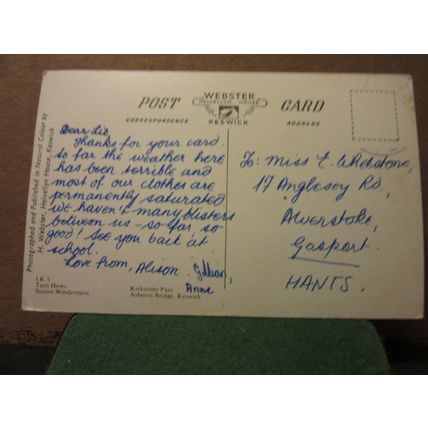 POST
WEBSTER
HELVELLYN HOUSE
KESWICK
CARD
CORRESPONDENCE
ADDRESS
Photographed and Published in Natural Colour by
H. Webster, Helvellyn House, Keswick
Dear Liz,
Thanks for your card
so far the weather here
has been terrible and
most of our clothes are
permanently saturated
we haven't many blisters
between us - so far so
good! See you back at
school.
Love from, Alison Gillian,
Anne
To: Miss E. Whetstone,
17 Anglesey Rd,
Alverstoke,
Gosport
HANTS.
LK 5
Tarn Hows
Sunset Windermere
Kirkstone Pass
Ashness Bridge, Keswick